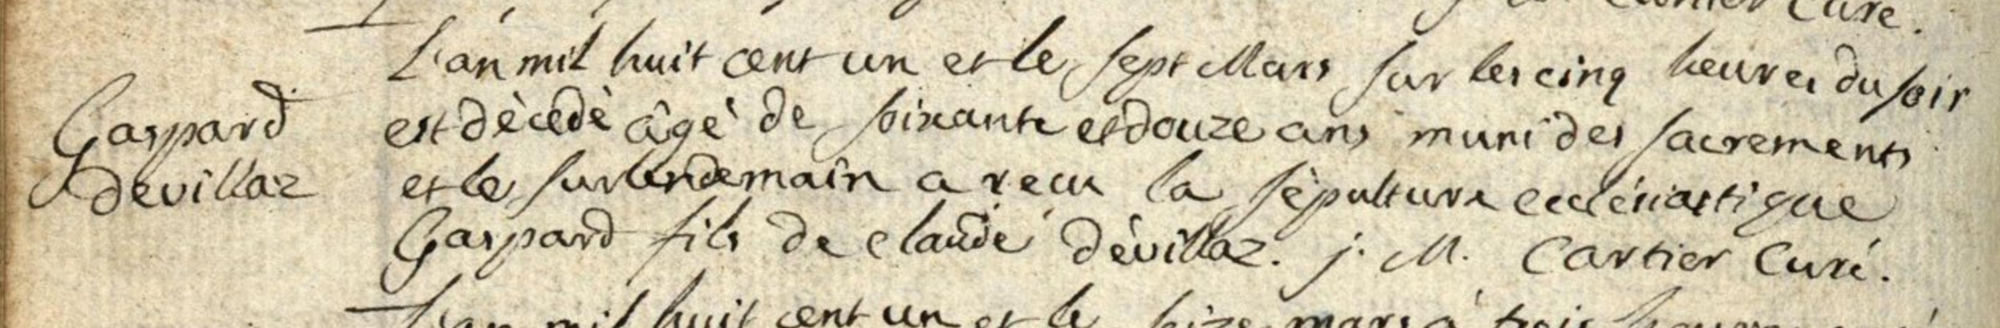 Cartier Curé.
L'an mil huit cent un et le sept Mars sur les cinq heures du soir
Gaspard
devillaz
est dècedè âgè de soixante et douze ans muni des sacrements
et le surlendemain a recu la sèpulture ecclésiastique
Gaspard fils de claude dévillaz. j. M. Cartier Curé.
L'an mil huit cent un et le seize mars à trois heures